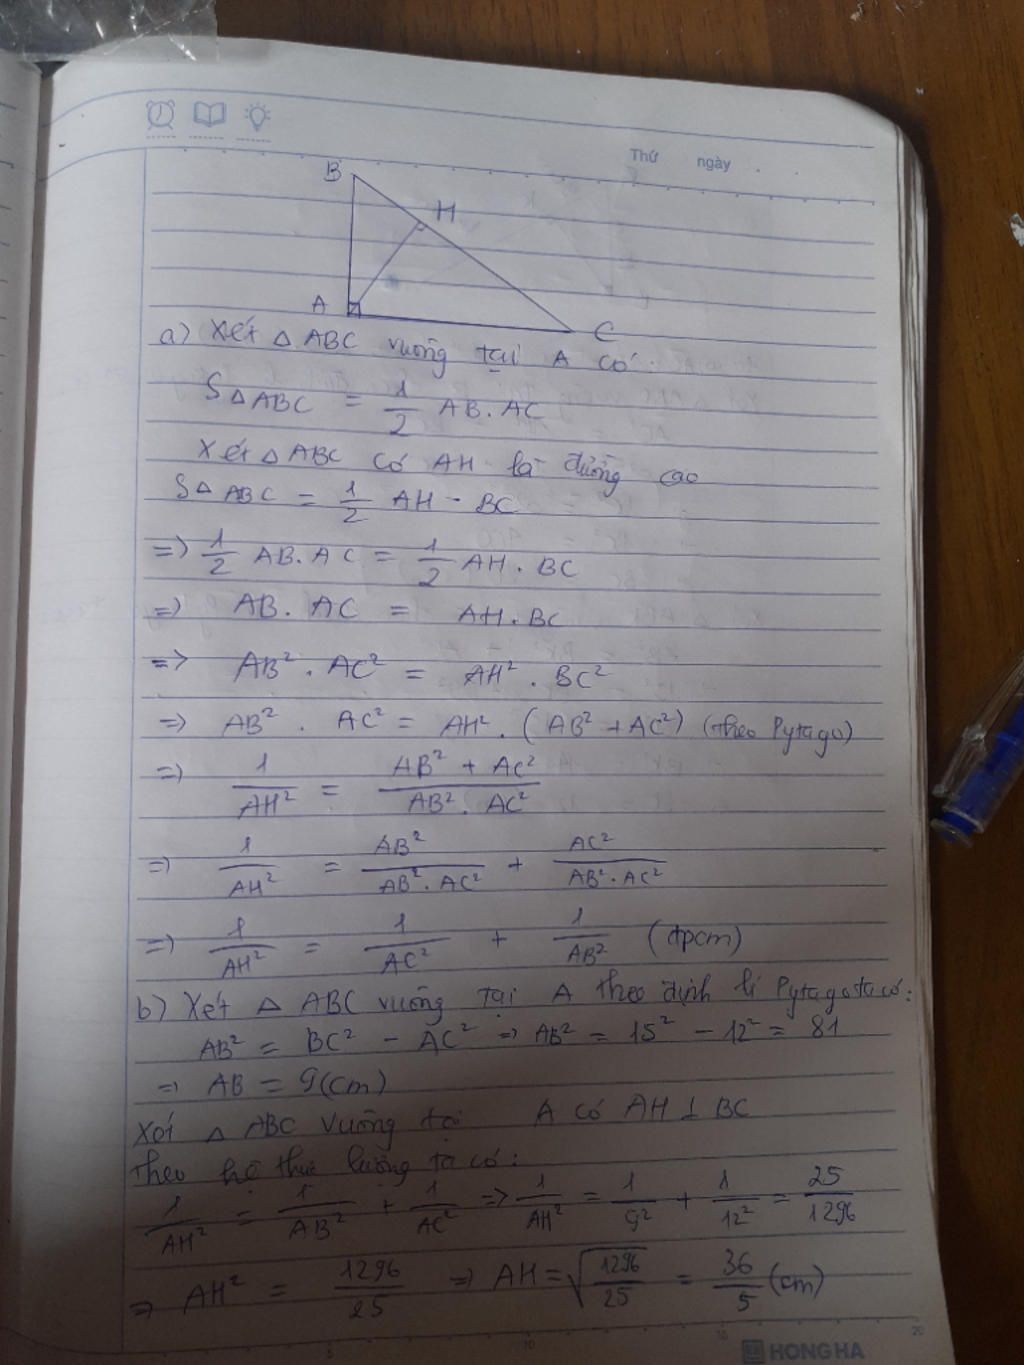 Thứ ngày
B
H
A
C
a) Xét △ ABC vuông tại A có:
S△ABC = 1/2 AB.AC
Xét △ ABC có AH là đường cao
S△ABC = 1/2 AH - BC
=> 1/2 AB.AC = 1/2 AH.BC
=> AB.AC = AH.BC
=> AB².AC² = AH².BC²
=> AB².AC² = AH².(AB²+AC²) (theo Pytago)
=> 1/AH² = (AB² + AC²)/(AB².AC²)
=> 1/AH² = AB²/(AB².AC²) + AC²/(AB².AC²)
=> 1/AH² = 1/AC² + 1/AB² (đpcm)
b) Xét △ ABC vuông tại A theo định lí Pytago ta có:
AB² = BC² - AC² => AB² = 15² - 12² = 81
=> AB = 9(cm)
Xét △ ABC vuông tại A có AH ⊥ BC
Theo hệ thức lượng ta có:
1/AH² = 1/AB² + 1/AC² => 1/AH² = 1/9² + 1/12² = 25/1296
=> AH² = 1296/25 => AH = √(1296/25) = 36/5 (cm)
5 10 15 20
HONG HA